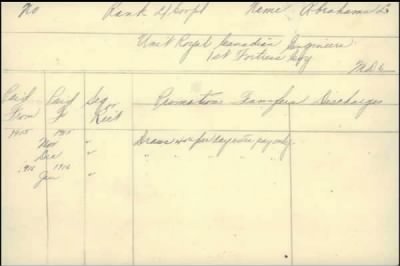 No Rank L/Corpl Name Abrahams L
Unit Royal Canadian Engineers
1st Fortress Coy
M.D. 6
Paid From Paid To Sec or Rect Promotions Transfers Discharges
1915 1915
Nov " Draws per day extra pay only
Dec " " "
1916 1916
Jan "